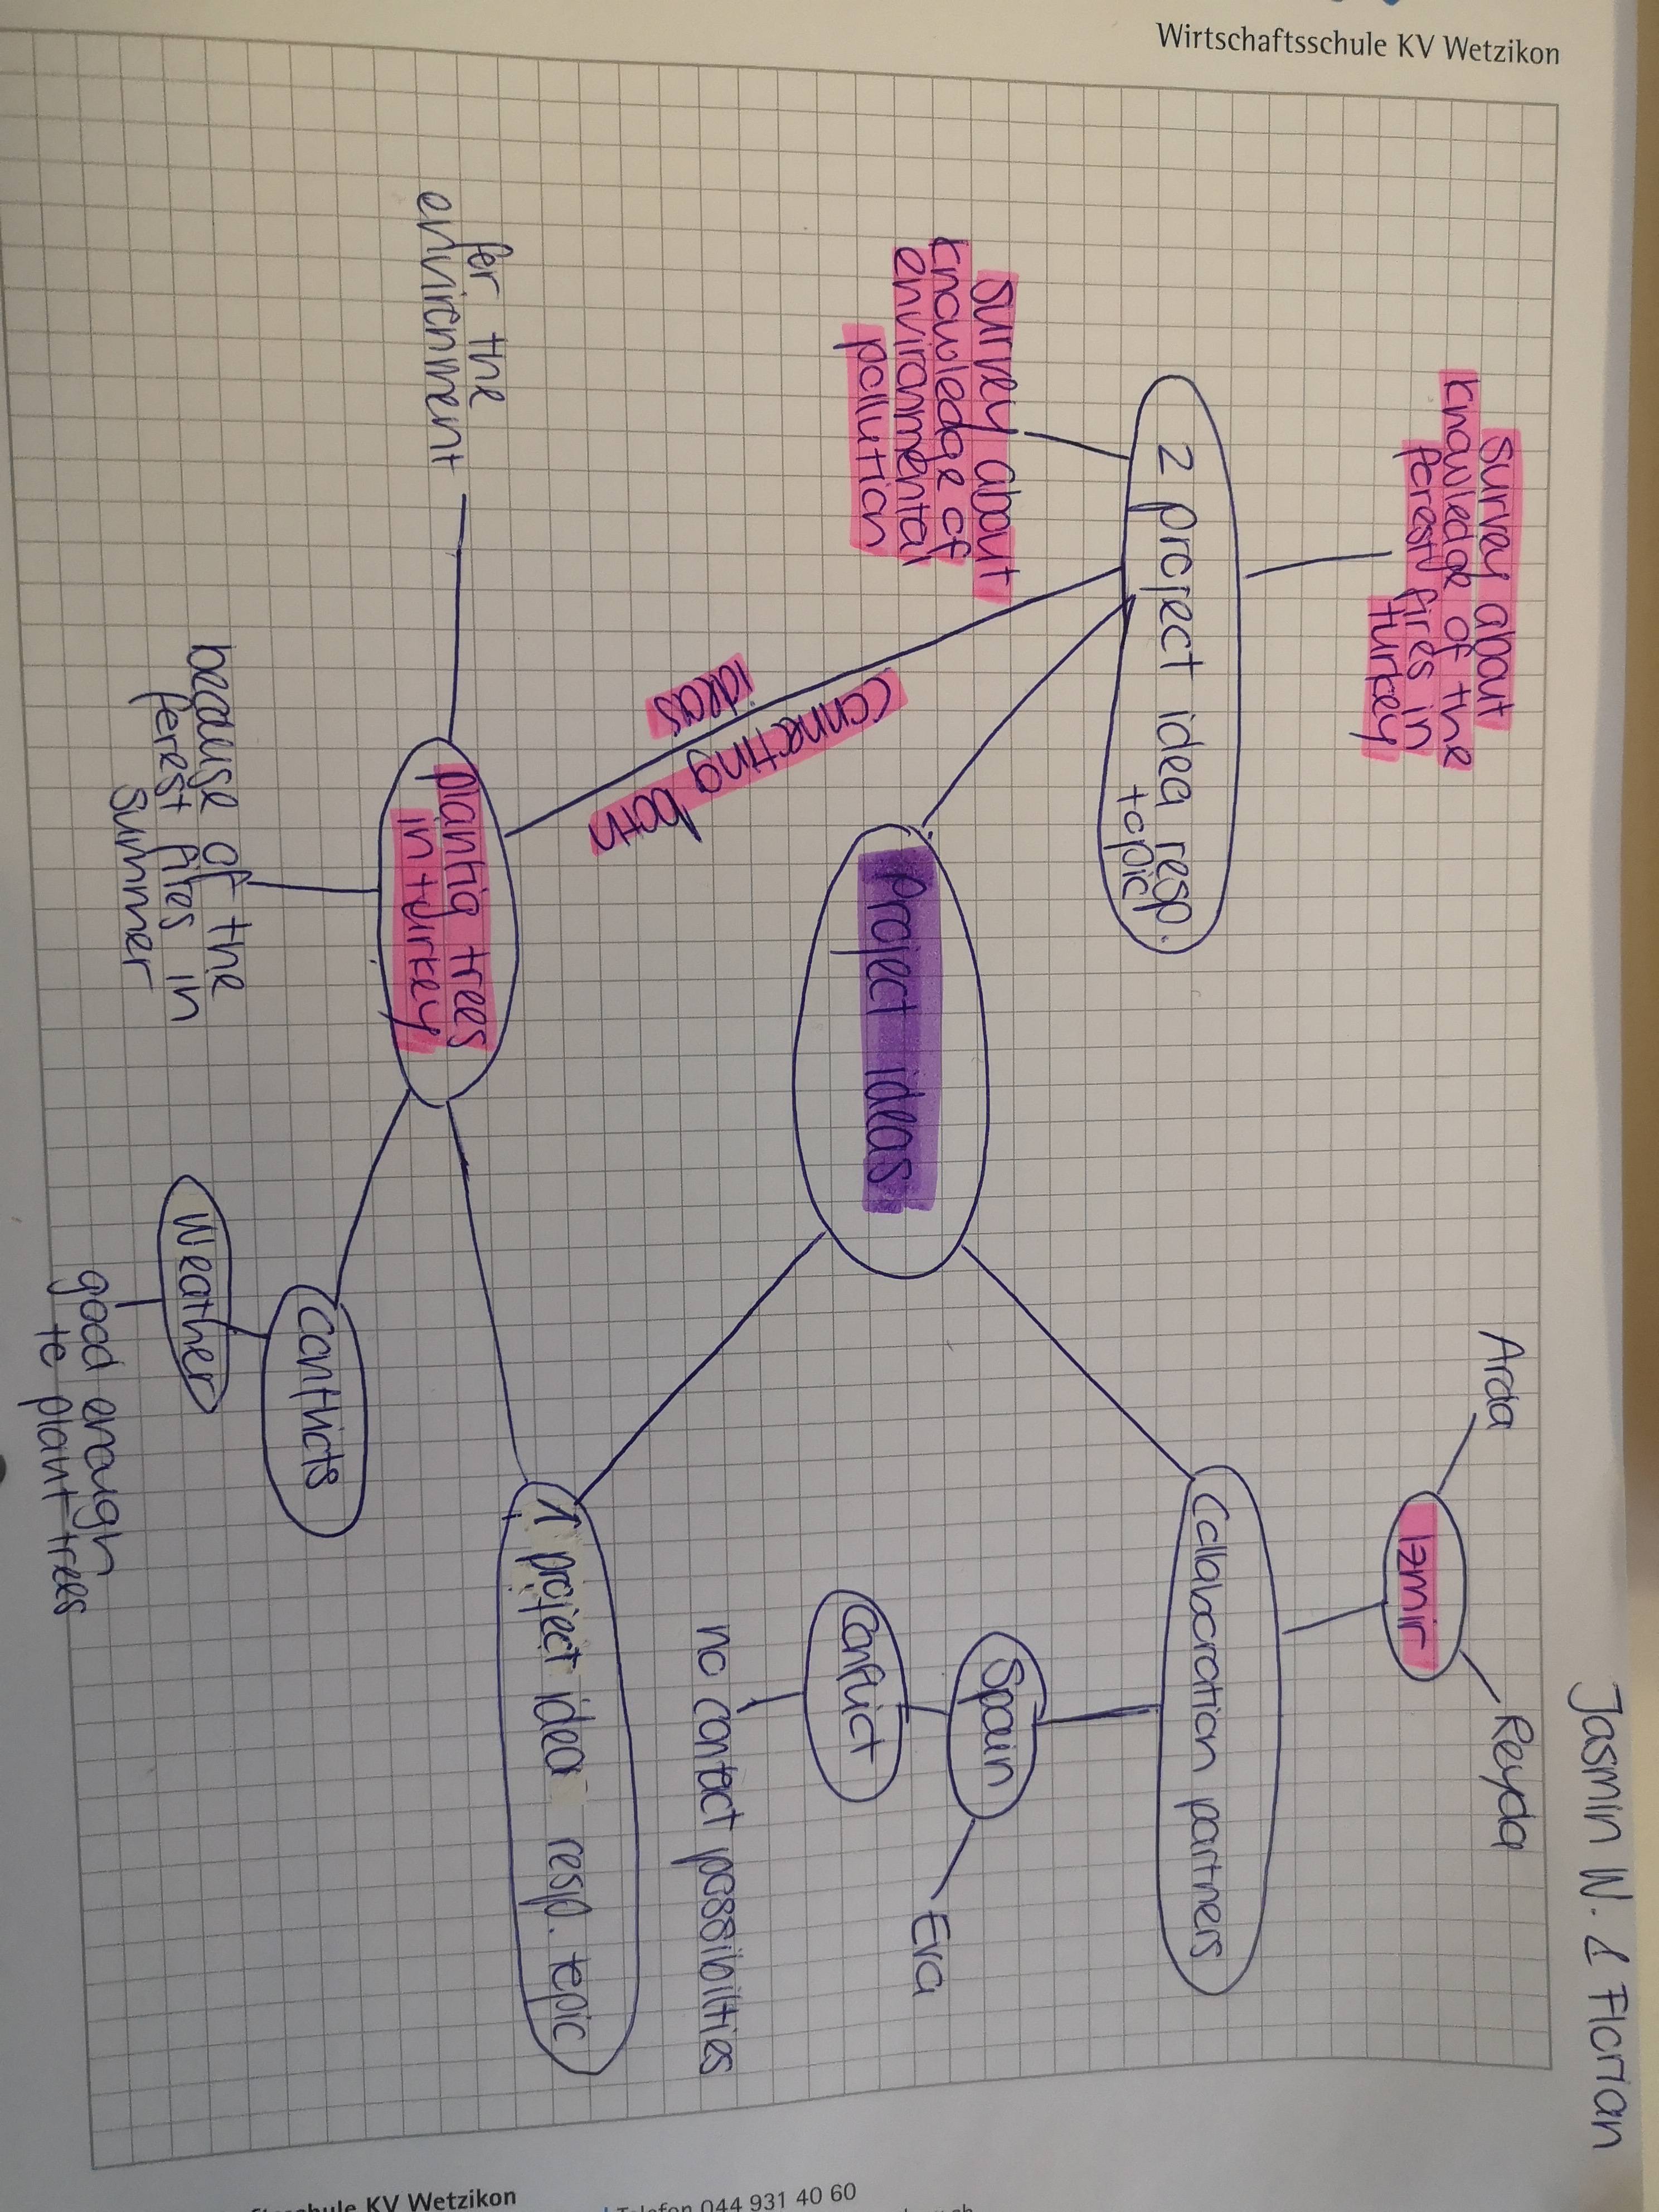 Wirtschaftsschule KV Wetzikon
Jasmin W. & Florian
Survey about
knowledge of the
forest fires in
turkey
2 project idea resp.
topic
Survey about
knowledge of
environmental
pollution
connecting both
ideas
Project ideas
Arda
Izmir
Reyda
Collaboration partners
Spain
Eva
Conflict
no contact possibilities
1 project idea resp. topic
planting trees
in turkey
for the
environment
because of the
forest fires in
Summer
Conflicts
Weather
good enough
to plant trees
schule KV Wetzikon
Telefon 044 931 40 60